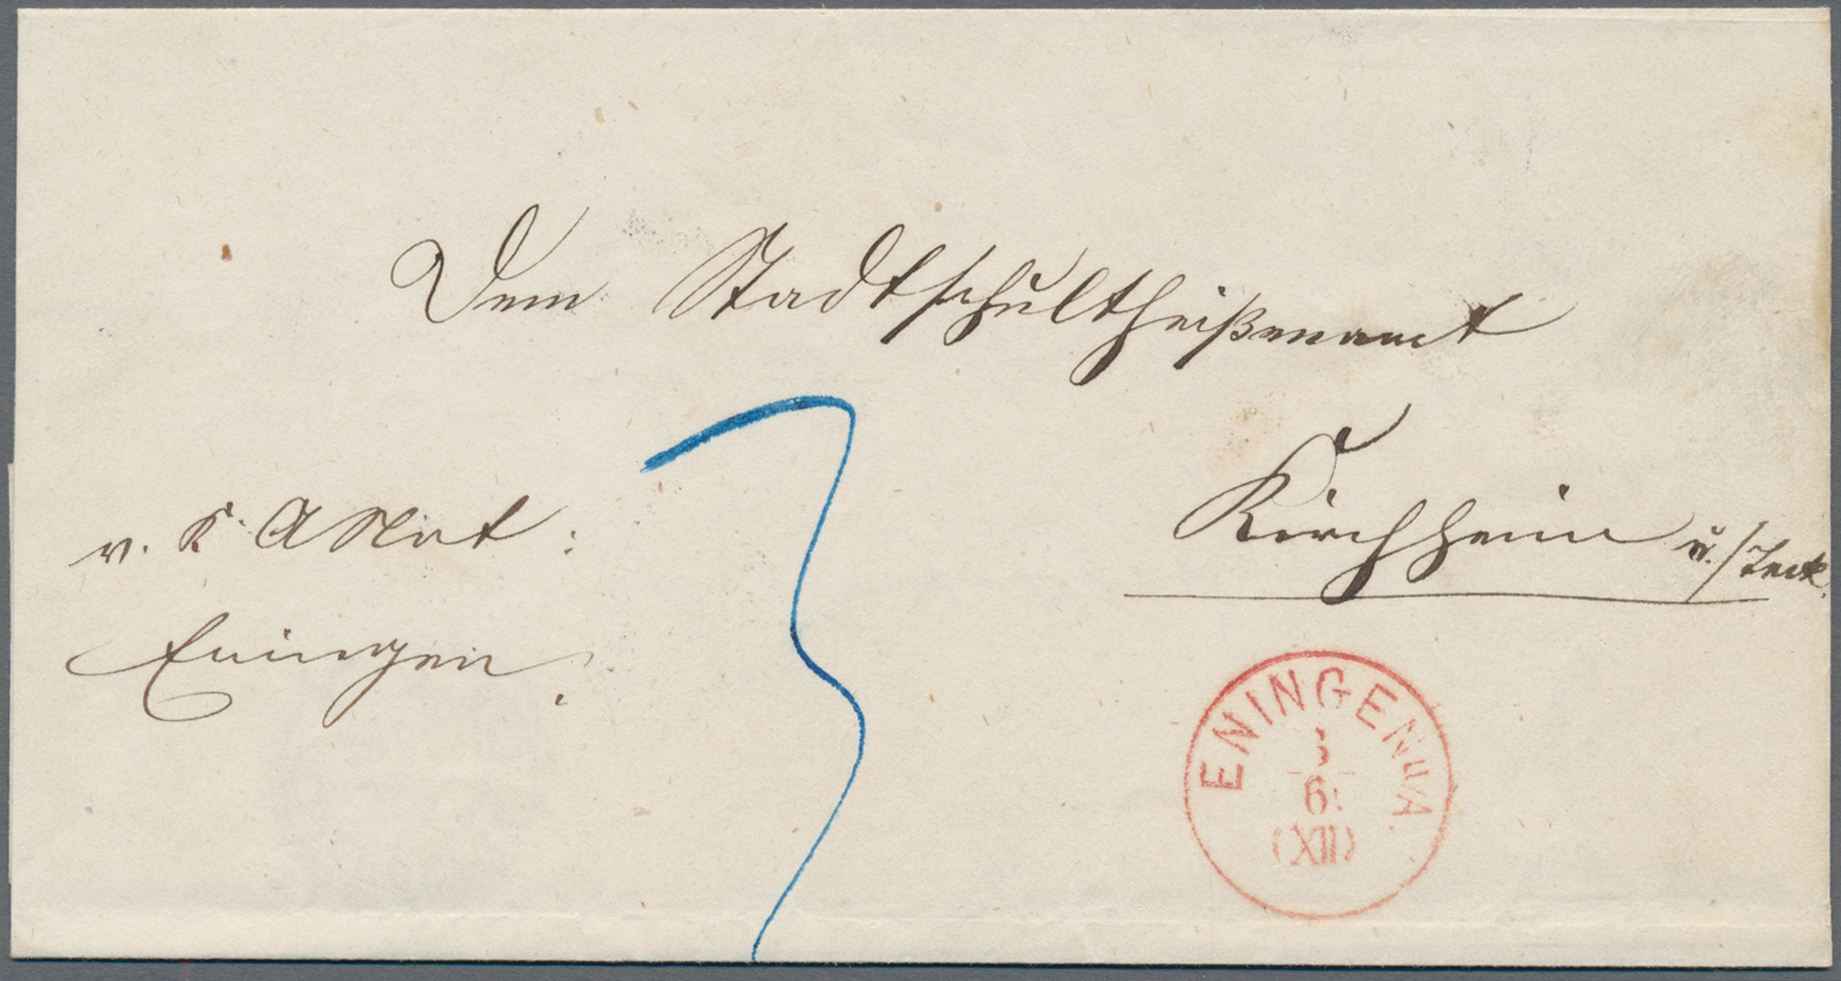 Dem Stadtschultheißenamt
Kirchheim u./Teck.
v. K. A Not:
Eningen.
3
ENINGEN U/A.
3
6
(XII)